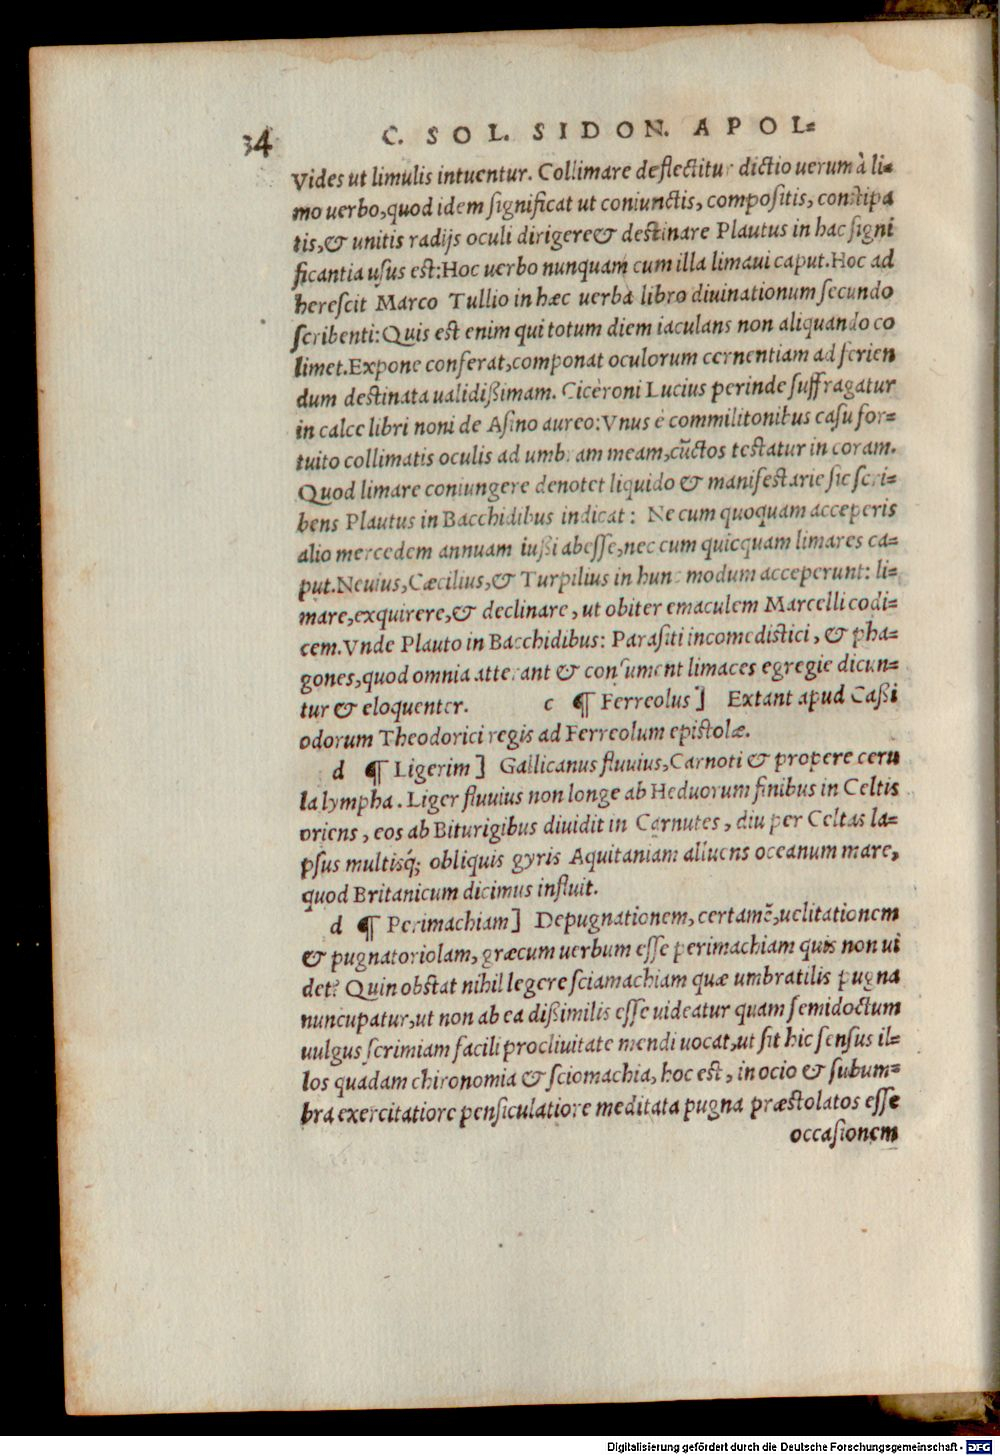 34
C. SOL. SIDON. APOL=
Vides ut limulis intuentur. Collimare deflectitur dictio uerum à li=
mo uerbo,quod idem significat ut coniunctis, compositis, constipa
tis,& unitis radijs oculi dirigere& destinare Plautus in hac signi
ficantia usus est:Hoc uerbo nunquam cum illa limaui caput.Hoc ad
herescit Marco Tullio in hæc uerba libro diuinationum secundo
scribenti:Quis est enim qui totum diem iaculans non aliquando co
limet.Expone conferat,componat oculorum cernentiam ad ferien
dum destinata ualidißimam. Ciceroni Lucius perinde suffragatur
in calce libri noni de Asino aureo:Vnus è commilitonibus casu for=
tuito collimatis oculis ad umbram meam,cũctos testatur in coram.
Quod limare coniungere denotet liquido & manifestarie sic scri=
bens Plautus in Bacchidibus indicat: Ne cum quoquam acceperis
alio mercedem annuam iußi abesse,nec cum quicquam limares ca=
put.Neuius,Cæcilius,& Turpilius in hunc modum acceperunt: li=
mare,exquirere,& declinare, ut obiter emaculem Marcelli codi=
cem.Vnde Plauto in Bacchidibus: Parasiti incomedistici, & pha=
gones,quod omnia atterant & consument limaces egregie dicun=
tur & eloquenter. c ¶ Ferreolus] Extant apud Caßi
odorum Theodorici regis ad Ferreolum epistolæ.
d ¶ Ligerim] Gallicanus fluuius,Carnoti & propere ceru
la lympha. Liger fluuius non longe ab Heduorum finibus in Celtis
oriens, eos ab Biturigibus diuidit in Carnutes, diu per Celtas la=
psus multisq́; obliquis gyris Aquitaniam alluens oceanum mare,
quod Britanicum dicimus influit.
d ¶ Perimachiam] Depugnationem,certamẽ,uelitationem
& pugnatoriolam,græcum uerbum esse perimachiam quis non ui
det? Quin obstat nihil legere sciamachiam quæ umbratilis pugna
nuncupatur,ut non ab ea dißimilis esse uideatur quam semidoctum
uulgus scrimiam facili procliuitate mendi uocat,ut sit hic sensus il=
los quadam chironomia & sciomachia, hoc est, in ocio & subum=
bra exercitatiore pensiculatiore meditata pugna præstolatos esse
occasionem
Digitalisierung gefördert durch die Deutsche Forschungsgemeinschaft - DFG